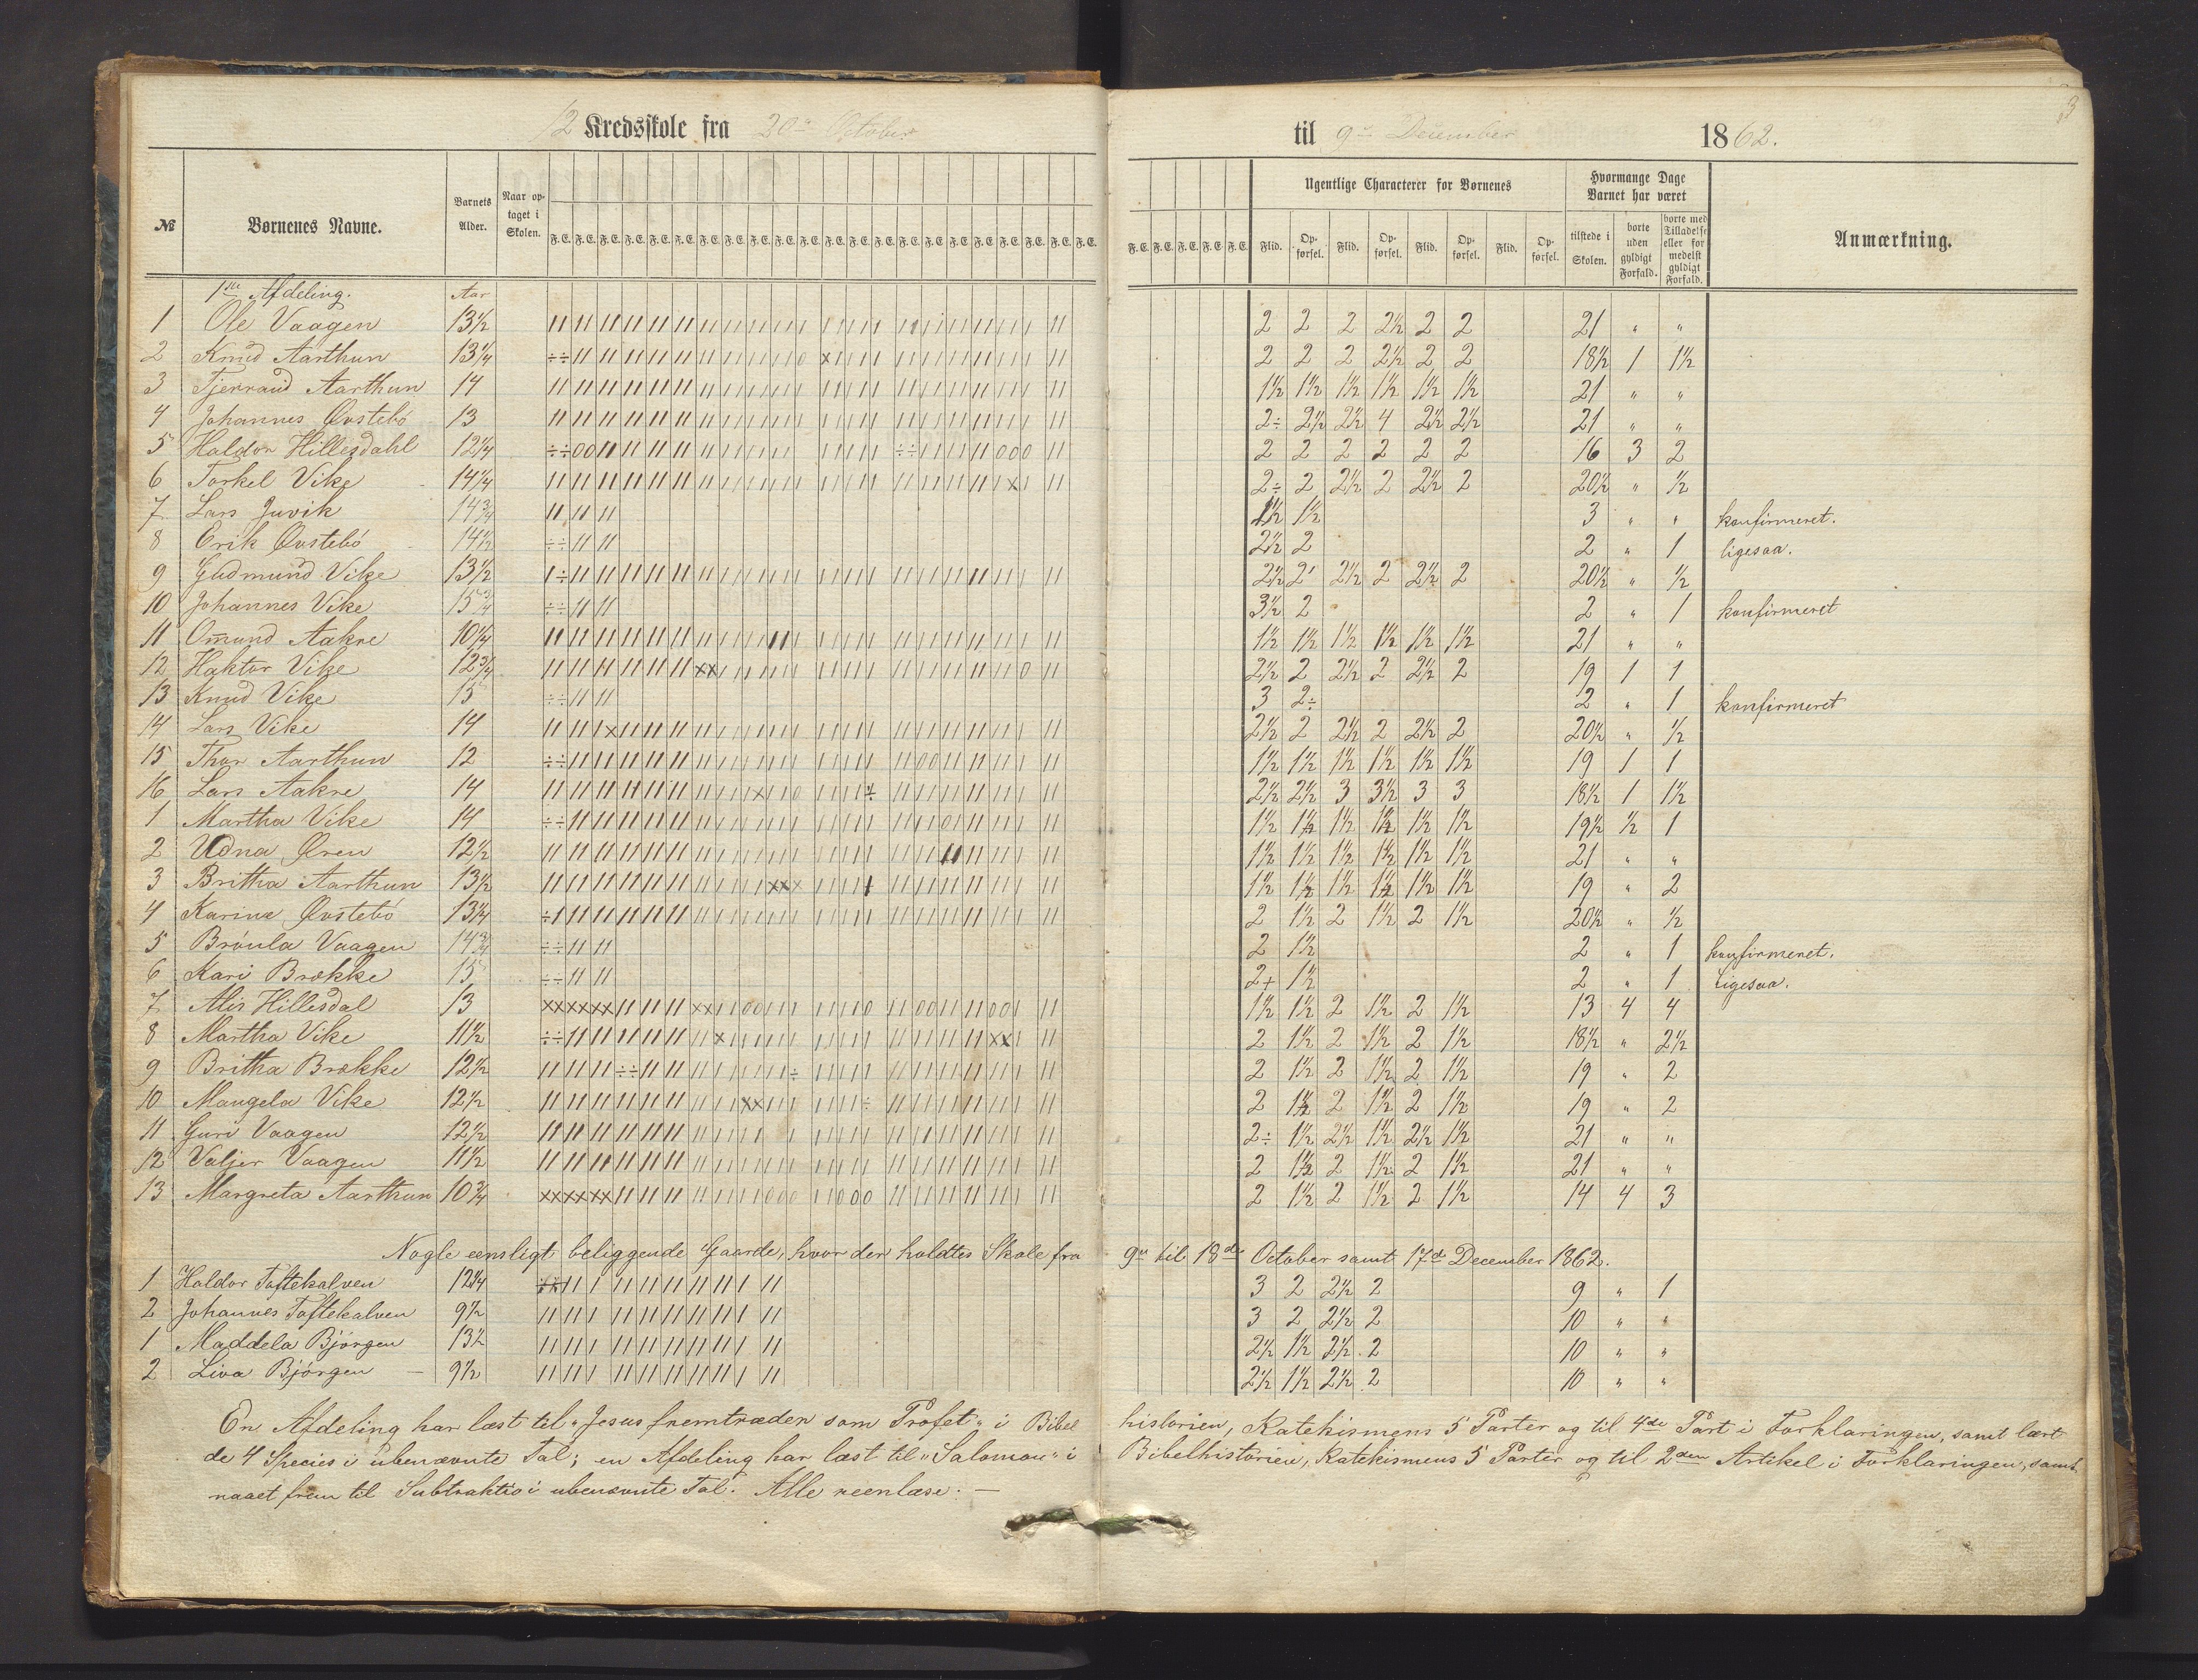 12 Kredsskole fra 20de October til 9de December 1862.
3
№ Børnenes Navne. Barnets Alder. Naar optaget i Skolen. F. E. Ugentlige Characterer for Børnenes Flid. Opførsel. Flid. Opførsel. Flid. Opførsel. Flid. Opførsel. Hvormange Dage Barnet har været tilstede i Skolen. borte uden gyldigt Forfald. borte med Tilladelse eller formedelst gyldigt Forfald. Anmærkning.
1ste Afdeling. Aar
1 Ole Vaagen 13½ 2 2 2 2½ 2 2 21 " "
2 Knud Aarthun 13¼ 2 2 2 2½ 2 2 18½ 1 1½
3 Tjerraud Aarthun 14 1½ 1½ 1½ 1½ 1½ 1½ 21 " "
4 Johannes Øvstebö 13 2÷ 2½ 2½ 4 2½ 2½ 21 " "
5 Haldor Hillesdahl 12¼ 2 2 2 2 2 2 16 3 2
6 Torkel Vike 14¼ 2÷ 2 2½ 2 2½ 2 20½ " ½
7 Lars Juvik 14¾ 1½ 1½ 3 " " konfirmeret.
8 Erik Øvstebö 14½ 2½ 2 2 " 1 ligesaa.
9 Gudmund Vike 13½ 2½ 2 2½ 2 2½ 2 20½ " ½
10 Johannes Vike 15¾ 3½ 2 2 " 1 konfirmeret
11 Omund Aakre 10¼ 1½ 1½ 1½ 1½ 1½ 1½ 21 " "
12 Haktor Vike 12¾ 2½ 2 2½ 2 2½ 2 19 1 1
13 Knud Vike 15 3 2÷ 2 " 1 konfirmeret
14 Lars Vike 14 2½ 2 2½ 2 2½ 2 20½ " ½
15 Thor Aarthun 12 1½ 1½ 1½ 1½ 1½ 1½ 19 1 1
16 Lars Aakre 14 2½ 2½ 3 3½ 3 3 18½ 1 1½
1 Martha Vike 14 1½ 1½ 1½ 1½ 1½ 1½ 19½ ½ 1
2 Udna Øren 12½ 1½ 1½ 1½ 1½ 1½ 1½ 21 " "
3 Britha Aarthun 13½ 1½ 1½ 1½ 1½ 1½ 1½ 19 " 2
4 Karine Øvstebö 13¼ 2 1½ 2 1½ 2 1½ 20½ " ½
5 Brönla Vaagen 14¾ 2 1½ 2 " 1 konfirmeret.
6 Kari Brække 15 2+ 1½ 2 " 1 Ligesaa.
7 Alis Hillesdal 13 1½ 1½ 2 1½ 2 1½ 13 4 4
8 Martha Vike 11½ 2 1½ 2 1½ 2 1½ 18½ " 2½
9 Britha Brække 12½ 2 1½ 2 1½ 2 1½ 19 " 2
10 Maugela Vike 12½ 2 1½ 2 1½ 2 1½ 19 " 2
11 Guri Vaagen 12½ 2÷ 1½ 2½ 1½ 2½ 1½ 21 " "
12 Valjer Vaagen 11½ 2 1½ 2 1½ 2 1½ 21 " "
13 Margreta Aarthun 10¾ 2 1½ 2 1½ 2 1½ 14 4 3
Nogle eensligt beliggende Gaarde, hvor der holdtes Skole fra 9de til 18de October samt 17de December 1862.
1 Haldor Toftekalven 12¼ 3 2 2½ 2 9 " 1
2 Johannes Toftekalven 9½ 3 2 2½ 2 10 " "
1 Maddela Bjørgen 13½ 2½ 1½ 2½ 2 10 " "
2 Liva Bjørgen 9½ 2½ 1½ 2½ 2 10 " "
En Afdeling har læst til „Jesus fremtræder som Profet" i Bibelhistorien, Katekismens 5 Parter og til 4de Part i Forklaringen, samt lært
de 4 Species i ubenævnte Tal; en Afdeling har læst til „Salomon" i Bibelhistorien, Katekismens 5 Parter og til 2den Artikel i Forklaringen, samt
naaet frem til Subtraktio i ubenævnte Tal. Alle reenlæse. —